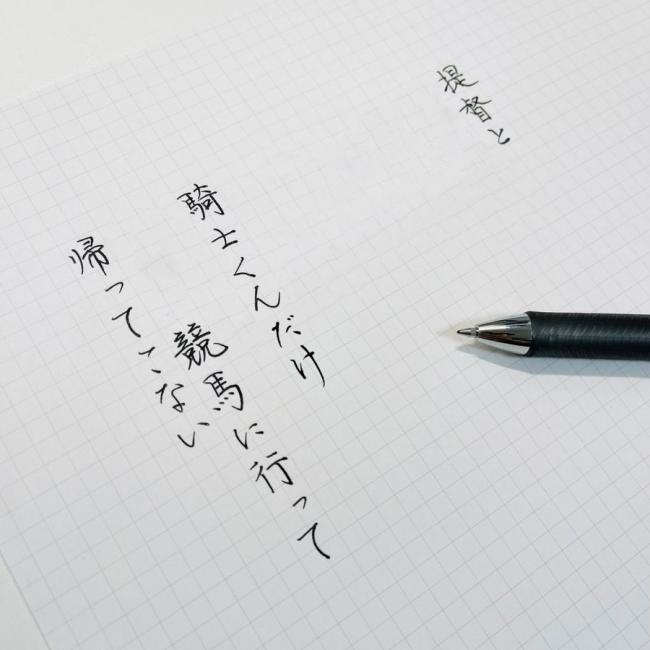 提督と
騎士くんだけ
競馬に行って
帰ってこない